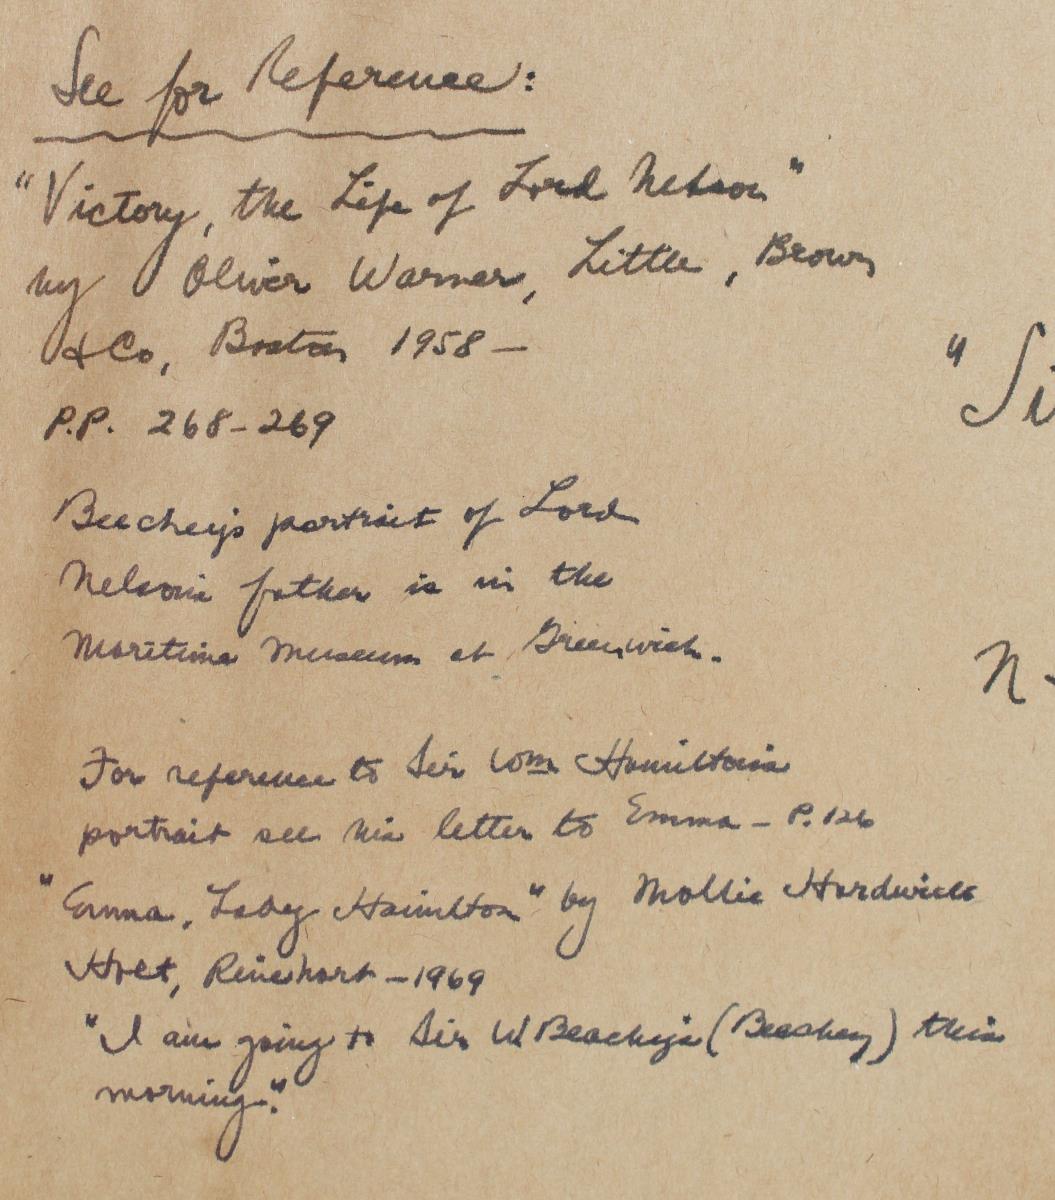 See for Reference:
"Victory, the Life of Lord Nelson"
by Oliver Warner, Little, Brown
& Co, Boston 1958 –
P.P. 268-269
Beechey's portrait of Lord
Nelson's father is in the
Maritime Museum at Greenwich.
For reference to Sir Wm Hamilton's
portrait see his letter to Emma – P. 126
"Emma, Lady Hamilton" by Mollie Hardwick
Holt, Rinehart – 1969
"I am going to Sir W Beachy's (Beechey) this
morning."
"Si
N